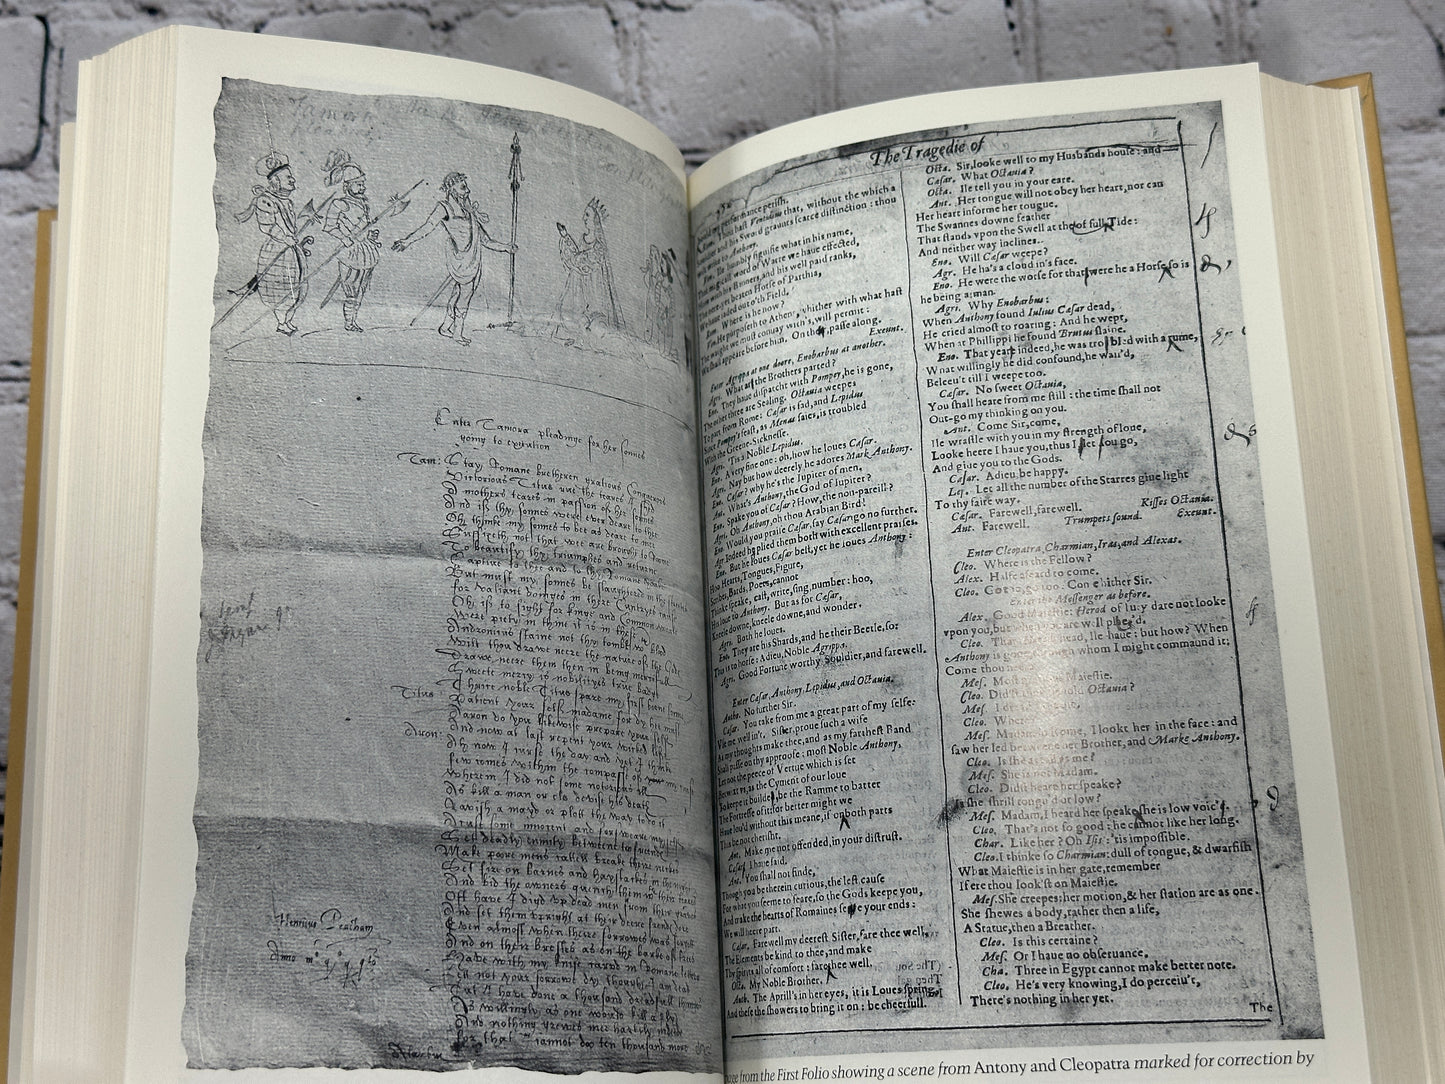 Enter Tamora pleadinge for her sonnes
going to execution
Tam: Stay Romane bretheren gratious Conquerors
Victorious Titus rue the teares I shed
A mothers teares in passion of her sonnes
And if thy sonnes were ever deare to thee
Oh thinke my sonnes to bee as deare to mee
Suffizeth not that wee are brought to Roome
To beautify thy triumphes and returne
Captive to thee and to thy Romane yoake
But must my sonnes be slaughtered in the streetes
for valiant doinges in there Cuntryes cause
Oh if to fight for kinge and Common weale
Were piety in thine it is in these
Andronicus staine not thy tombe with blood
Wilt thou drawe neere the nature of the Godes
Drawe neere them then in being mercifull
Sweete mercy is nobilityes true badge
Thrice noble Titus spare my first borne sonne
Titus: Patient your self madame for dy hee must
Aaron do you likewise prepare your self
And now at last repent your wicked life
Aron: Ah now I curse the day and yet I thinke
few comes within the compasse of my curse
Wherein I did not some notorious ill
As kill a man or els devise his death
Ravish a mayd or plott the way to do it
Acuse some innocent and forsweare my self
Set deadly enmity betweene two freendes
Make poore mens cattell breake theire neckes
Set fire on barnes and haystackes in the night
And bid the owners quench them with their teares
Oft have I digd up dead men from their graves
And set them upright at their deere frendes dore
Even almost when theire sorrowes was forgott
And on their brestes as on the barke of trees
Have with my knife carvd in Romane letters
Lett not your sorrowe dy though I am dead
Tut I have done a thousand dreadfull thinges
As willingly as one would kill a fly
And nothing greives mee hartily indeede
for that I cannot doo ten thousand more
Alarbus
Henricus Peacham
Anno
The Tragedie of
Could my performance perish.
thou hast Ventidius that, without the which a
Souldier and his Sword graunts scarce distinction: thou
wilt write to Anthony.
Ven. Ile humbly signifie what in his name,
That magicall word of Warre we haue effected,
How with his Banners, and his well paid ranks,
The nere-yet beaten Horse of Parthia,
We haue iaded out o'th'Field.
Rom. Where is he now?
Ven. He purposeth to Athens, whither with what hast
The waight we must conuay with's, will permit:
We shall appeare before him. On there, passe along.
Exeunt.
Enter Agrippa at one doore, Enobarbus at another.
Agri. What are the Brothers parted?
Eno. They haue dispatcht with Pompey, he is gone,
The other three are Sealing. Octauia weepes
To part from Rome: Cæsar is sad, and Lepidus
Since Pompey's feast, as Menas saies, is troubled
With the Greene-Sicknesse.
Agri. 'Tis a Noble Lepidus.
Eno. A very fine one: oh, how he loues Cæsar.
Agri. Nay but how deerely he adores Mark Anthony.
Eno. Cæsar? why he's the Iupiter of men.
Ant. What's Anthony, the God of Iupiter?
Eno. Spake you of Cæsar? How, the non-pareill?
Agri. Oh Anthony, oh thou Arabian Bird!
Eno. Would you praise Cæsar, say Cæsar go no further.
Agr. Indeed he plied them both with excellent praises.
Eno. But he loues Cæsar best, yet he loues Anthony:
Hoo, Hearts, Tongues, Figure,
Scribes, Bards, Poets, cannot
Thinke speake, cast, write, sing, number: hoo,
His loue to Anthony. But as for Cæsar,
Kneele downe, kneele downe, and wonder.
Agri. Both he loues.
Eno. They are his Shards, and he their Beetle, so:
This is to horse: Adieu, Noble Agrippa.
Agri. Good Fortune worthy Souldier, and farewell.
Enter Cæsar, Anthony, Lepidus, and Octauia.
Antho. No further Sir.
Cæsar. You take from me a great part of my selfe:
Vse me well in't. Sister, proue such a wife
As my thoughts make thee, and as my farthest Band
Shall passe on thy approofe: most Noble Anthony,
Let not the peece of Vertue which is set
Betwixt vs, as the Cyment of our loue
To keepe it builded, be the Ramme to batter
The Fortresse of it: for better might we
Haue lou'd without this meane, if on both parts
This be not cherisht.
Ant. Make me not offended, in your distrust.
Cæsar. I haue said.
Ant. You shall not finde,
Though you be therein curious, the lest cause
For what you seeme to feare, so the Gods keepe you,
And make the hearts of Romaines serue your ends:
We will heere part.
Cæsar. Farewell my deerest Sister, fare thee well,
The Elements be kind to thee, and make
Thy spirits all of comfort: fare thee well.
Octa. My Noble Brother.
Anth. The Aprill's in her eyes, it is Loues spring,
And these the showers to bring it on: be cheerfull.
Octa. Sir, looke well to my Husbands house: and
Cæsar. What Octauia?
Octa. Ile tell you in your eare.
Ant. Her tongue will not obey her heart, nor can
Her heart informe her tougue.
The Swannes downe feather
That stands vpon the Swell at the of full Tide:
And neither way inclines.
Eno. Will Cæsar weepe?
Agr. He ha's a cloud in's face.
Eno. He were the worse for that were he a Horse so is
he being a man.
Agri. Why Enobarbus:
When Anthony found Iulius Cæsar dead,
He cried almost to roaring: And he wept,
When at Phillippi he found Brutus slaine.
Eno. That yeare indeed, he was trobled with a rume,
What willingly he did confound, he wail'd,
Beleeu't till I weepe too.
Cæsar. No sweet Octauia,
You shall heare from me still: the time shall not
Out-go my thinking on you.
Ant. Come Sir, come,
Ile wrastle with you in my strength of loue,
Looke heere I haue you, thus I let you go,
And giue you to the Gods.
Cæsar. Adieu, be happy.
Lep. Let all the number of the Starres giue light
To thy faire way.
Cæsar. Farewell, farewell. Kisses Octauia.
Ant. Farewell. Trumpets sound. Exeunt.
Enter Cleopatra, Charmian, Iras, and Alexas.
Cleo. Where is the Fellow?
Alex. Halfe afeard to come.
Cleo. Go too, go too: Come hither Sir.
Enter the Messenger as before.
Alex. Good Maiestie: Herod of Iury dare not looke
vpon you, but when you are well pleas'd.
Cleo. That Herods head, Ile haue: but how? When
Anthony is gone, through whom I might commaund it:
Come thou neere.
Mes. Most gratious Maiestie.
Cleo. Did'st thou behold Octauia?
Mes. I dread Queene.
Cleo. Where?
Mes. Madam in Rome, I lookt her in the face: and
saw her led betweene her Brother, and Marke Anthony.
Cleo. Is she as tall as me?
Mes. She is not Madam.
Cleo. Didst heare her speake?
Is she shrill tongu'd or low?
Mes. Madam, I heard her speake, she is low voic'd.
Cleo. That's not so good: he cannot like her long.
Char. Like her? Oh Isis: 'tis impossible.
Cleo. I thinke so Charmian: dull of tongue, & dwarfish
What Maiestie is in her gate, remember
If ere thou look'st on Maiestie.
Mes. She creepes: her motion, & her station are as one.
She shewes a body, rather then a life,
A Statue, then a Breather.
Cleo. Is this certaine?
Mes. Or I haue no obseruance.
Cha. Three in Egypt cannot make better note.
Cleo. He's very knowing, I do perceiu't,
There's nothing in her yet.
The
page from the First Folio showing a scene from Antony and Cleopatra marked for correction by